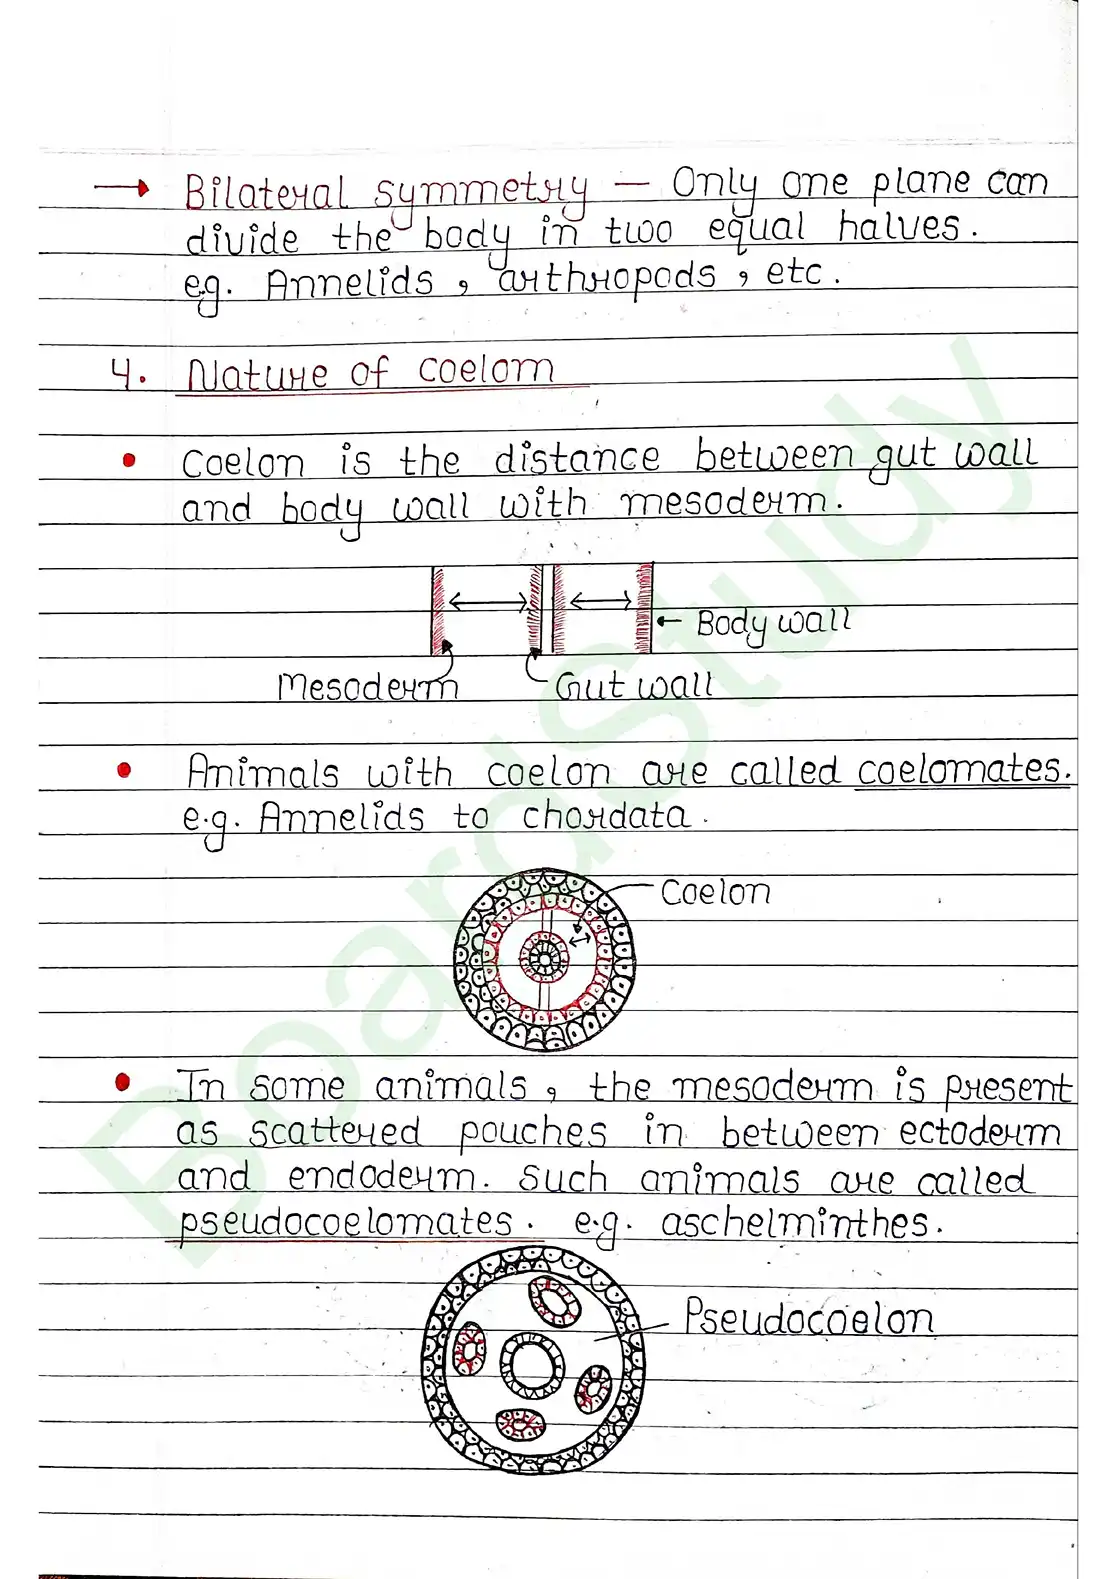 → Bilateral symmetry — Only one plane can
divide the body in two equal halves.
e.g. Annelids, arthropods, etc.
4. Nature of coelom
• Coelon is the distance between gut wall
and body wall with mesoderm.
← Body wall
Mesoderm Gut wall
• Animals with coelon are called coelomates.
e.g. Annelids to chordata.
Coelon
• In some animals, the mesoderm is present
as scattered pouches in between ectoderm
and endoderm. Such animals are called
pseudocoelomates. e.g. aschelminthes.
Pseudocoelon
BoardStudy